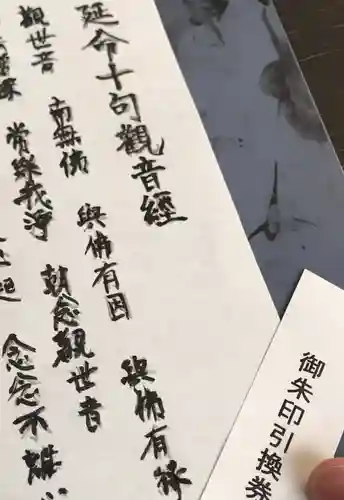 延命十句觀音經
觀世音 南無佛 與佛有因 與佛有縁
常樂我淨 朝念觀世音
念念不離
御朱印引換券